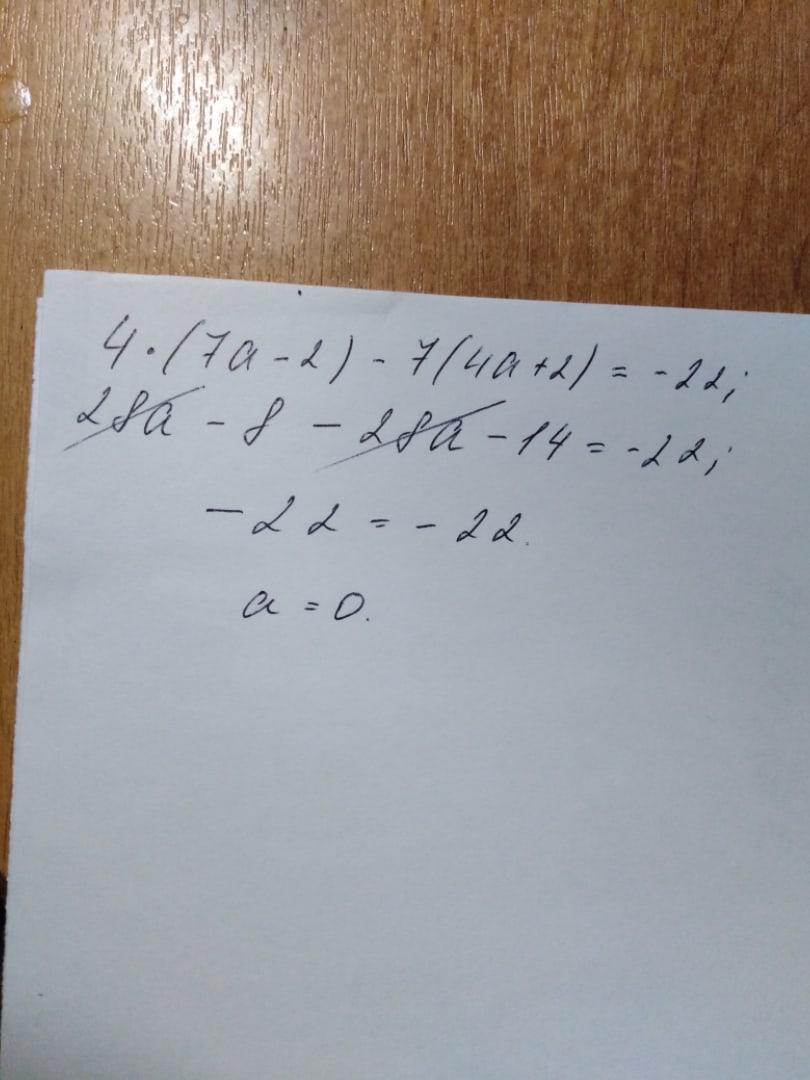 4·(7a-2)-7(4a+2)=-22;
28a-8-28a-14=-22;
-22=-22.
a=0.